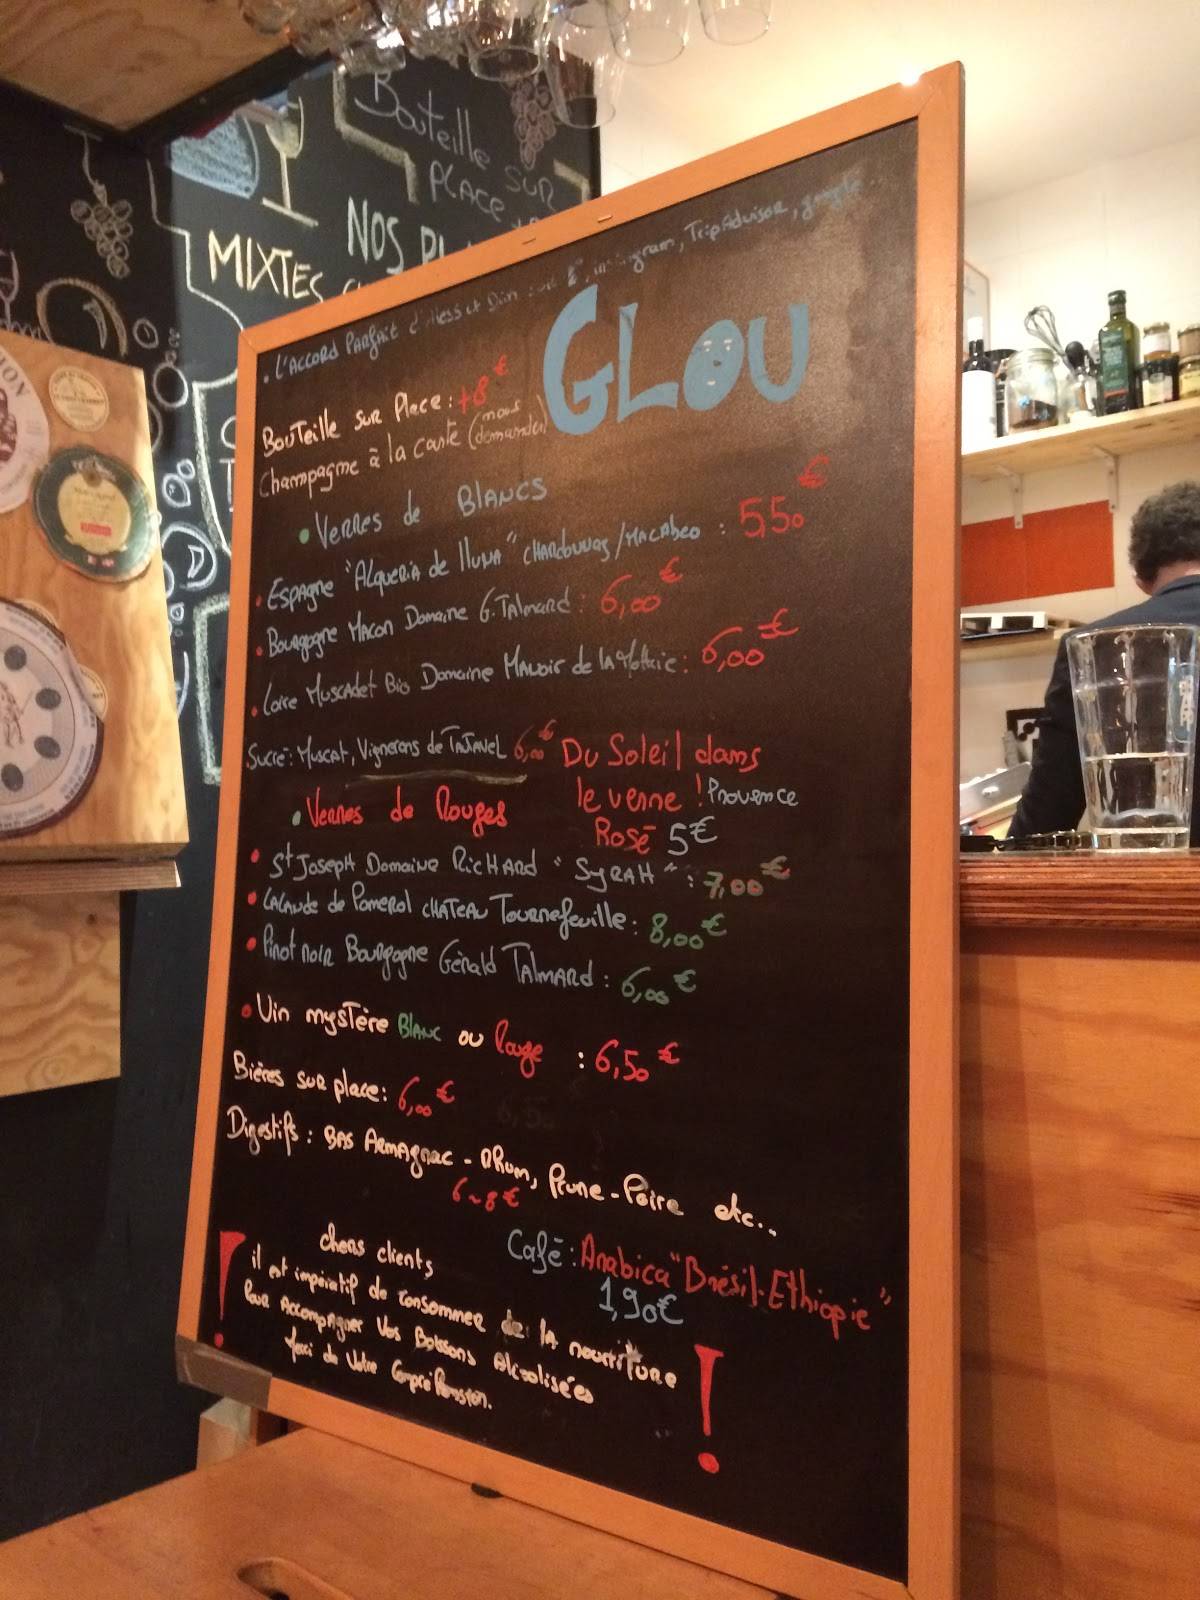 Bouteille sur
PLACE
NOS
MIXTES
• L'ACCORD PARFAIT d'Aless et Dim : sur, instagram, TripAdvisor, google..
GLOU
BOUTEILLE SUR PLACE : +8€
Champagne à la carte (nous demander)
• VERRES de BLANCS
• ESPAGNE "Alqueria de lluna" CHARDONNAY/MACABEO : 5,50€
• Bourgogne MACON Domaine G. TALMARD : 6,00€
• Loire MUSCADET Bio Domaine MALOIR de LA
6,00€
Sucré : MUSCAT, Vignerons de TAJAVEL 6,00€
Du Soleil dans
le verre ! Provence
Rosé 5€
• Verres de Rouges
• St JOSEPH DOMAINE RICHARD "SYRAH" : 7,00€
• LALANDE de POMEROL CHATEAU TOURNEFEUILLE : 8,00€
• Pinot noir Bourgogne Gérald TALMARD : 6,00€
• Vin mystère BLANC ou Rouge : 6,50€
Bières sur place : 6,00€
Digestifs : BAS ARMAGNAC - Rhum, Prune - Poire etc...
6 ~ 8€
Café : Arabica "Brésil-Ethiopie"
1,90€
! chers clients
il est impératif de consommer de la nourriture
Pour Accompagner Vos Boissons Alcoolisées
Merci de Votre Compréhension. !